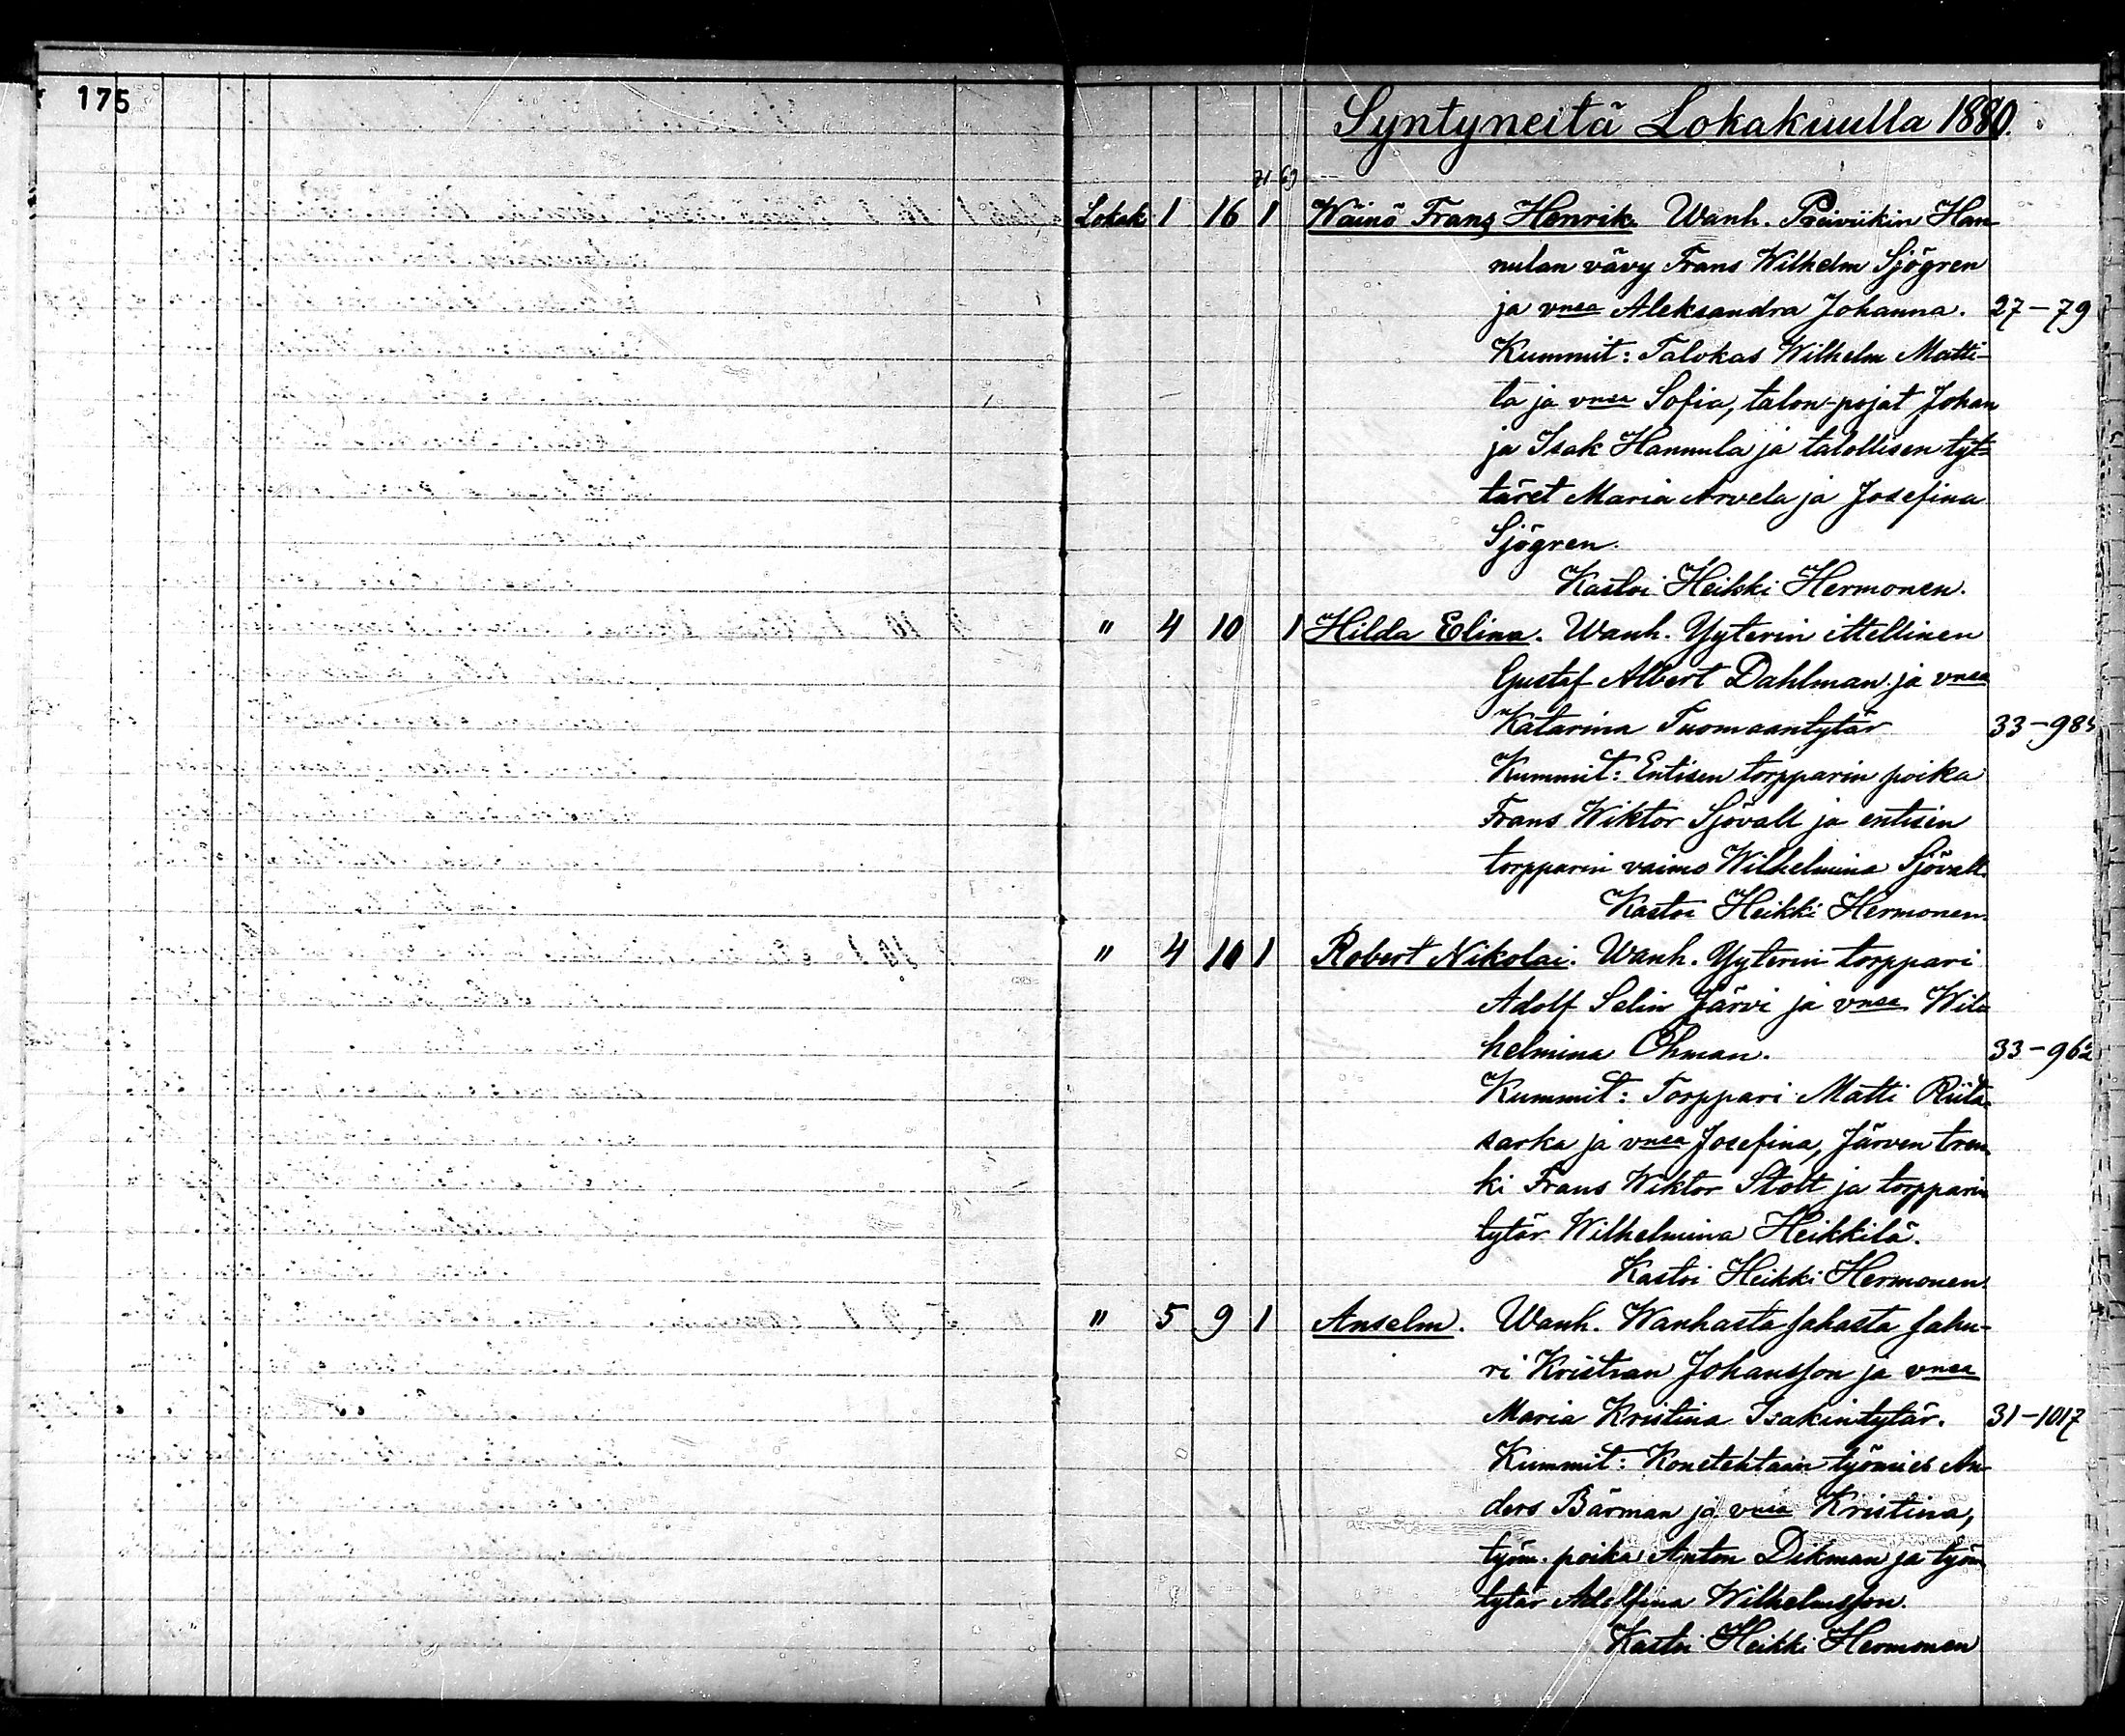 175
Syntyneitä Lokakuulla 1880.
71 69
Lokak. 1 16 1 Wäinö Frans Henrik. Wanh. Preiviikin Han-
nulan vävy Frans Wilhelm Sjögren
ja vnsa Aleksandra Johanna. 27-79
Kummit: Talokas Wilhelm Matti-
la ja vnsa Sofia, talon-pojat Johan
ja Isak Hannula ja talollisen tyt-
täret Maria Arvela ja Josefina
Sjögren.
Kastoi Heikki Hermonen.
" 4 10 1 Hilda Elina. Wanh. Yyterin ittellinen
Gustaf Albert Dahlman ja vnsa
Katarina Tuomaantytär 33-983
Kummit: Entisen torpparin poika
Frans Wiktor Sjövall ja entisen
torpparin vaimo Wilhelmina Sjövall.
Kastoi Heikki Hermonen.
" 4 10 1 Robert Nikolai. Wanh. Yyterin torppari
Adolf Selin Järvi ja vnsa Wil-
helmina Öhman. 33-962
Kummit: Torppari Matti Riita-
sarka ja vnsa Josefina, Järven tren-
ki Frans Wiktor Stolt ja torpparin
tytär Wilhelmina Heikkilä.
Kastoi Heikki Hermonen.
" 5 9 1 Anselm. Wanh. Wanhasta sahasta sahu-
ri Kristian Johansson ja vnsa
Maria Kristina Isakintytär. 31-1017
Kummit: Konetehtaan työmies An-
ders Bärman ja vnsa Kristina,
työm. poika Anton Dikman ja työm.
tytär Adolfina Wilhelmsson.
Kastoi Heikki Hermonen